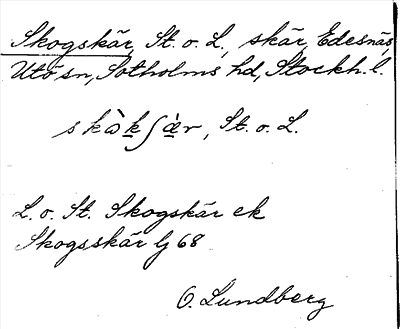 Skogskär, St. o. L., skär, Edesnäs,
Utö sn, Sotholms hd, Stockh. l.
skὼkʃæ̀r, St. o. L.
L. o. St. Skogskär ek
Skogsskär lj 68
O. Lundberg